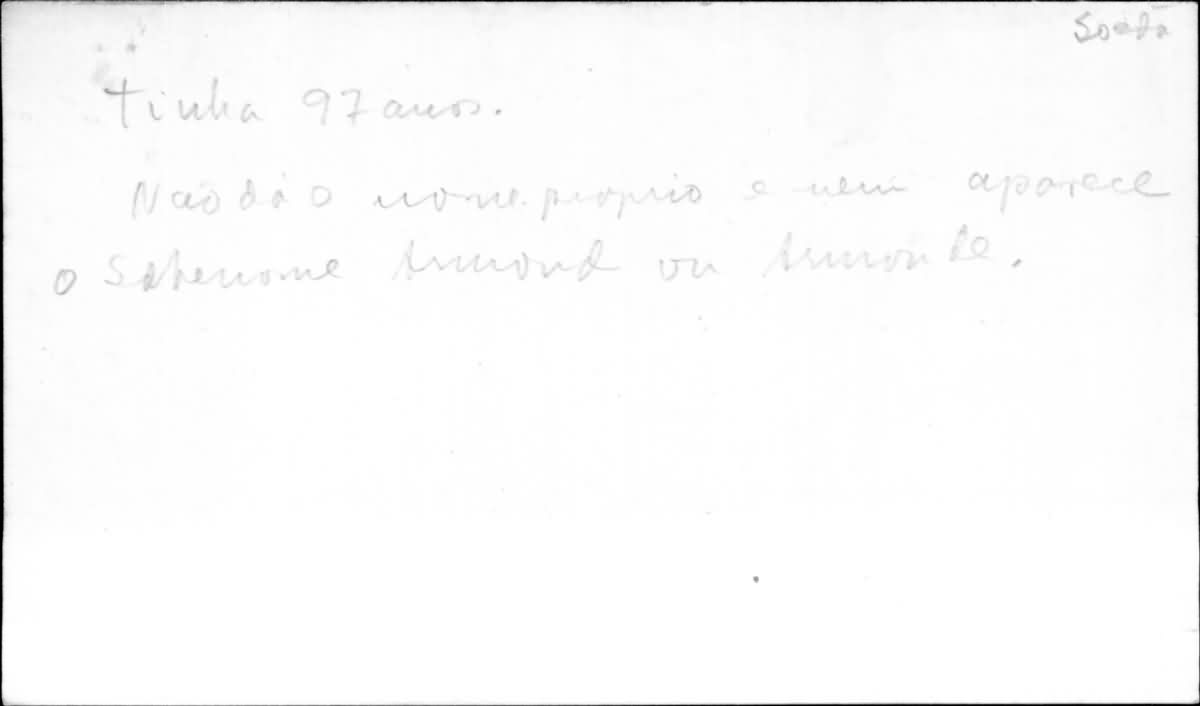 tinha 97 anos.
Não dá o nome proprio e nem aparece
o Sobrenome Armond ou Armonde.